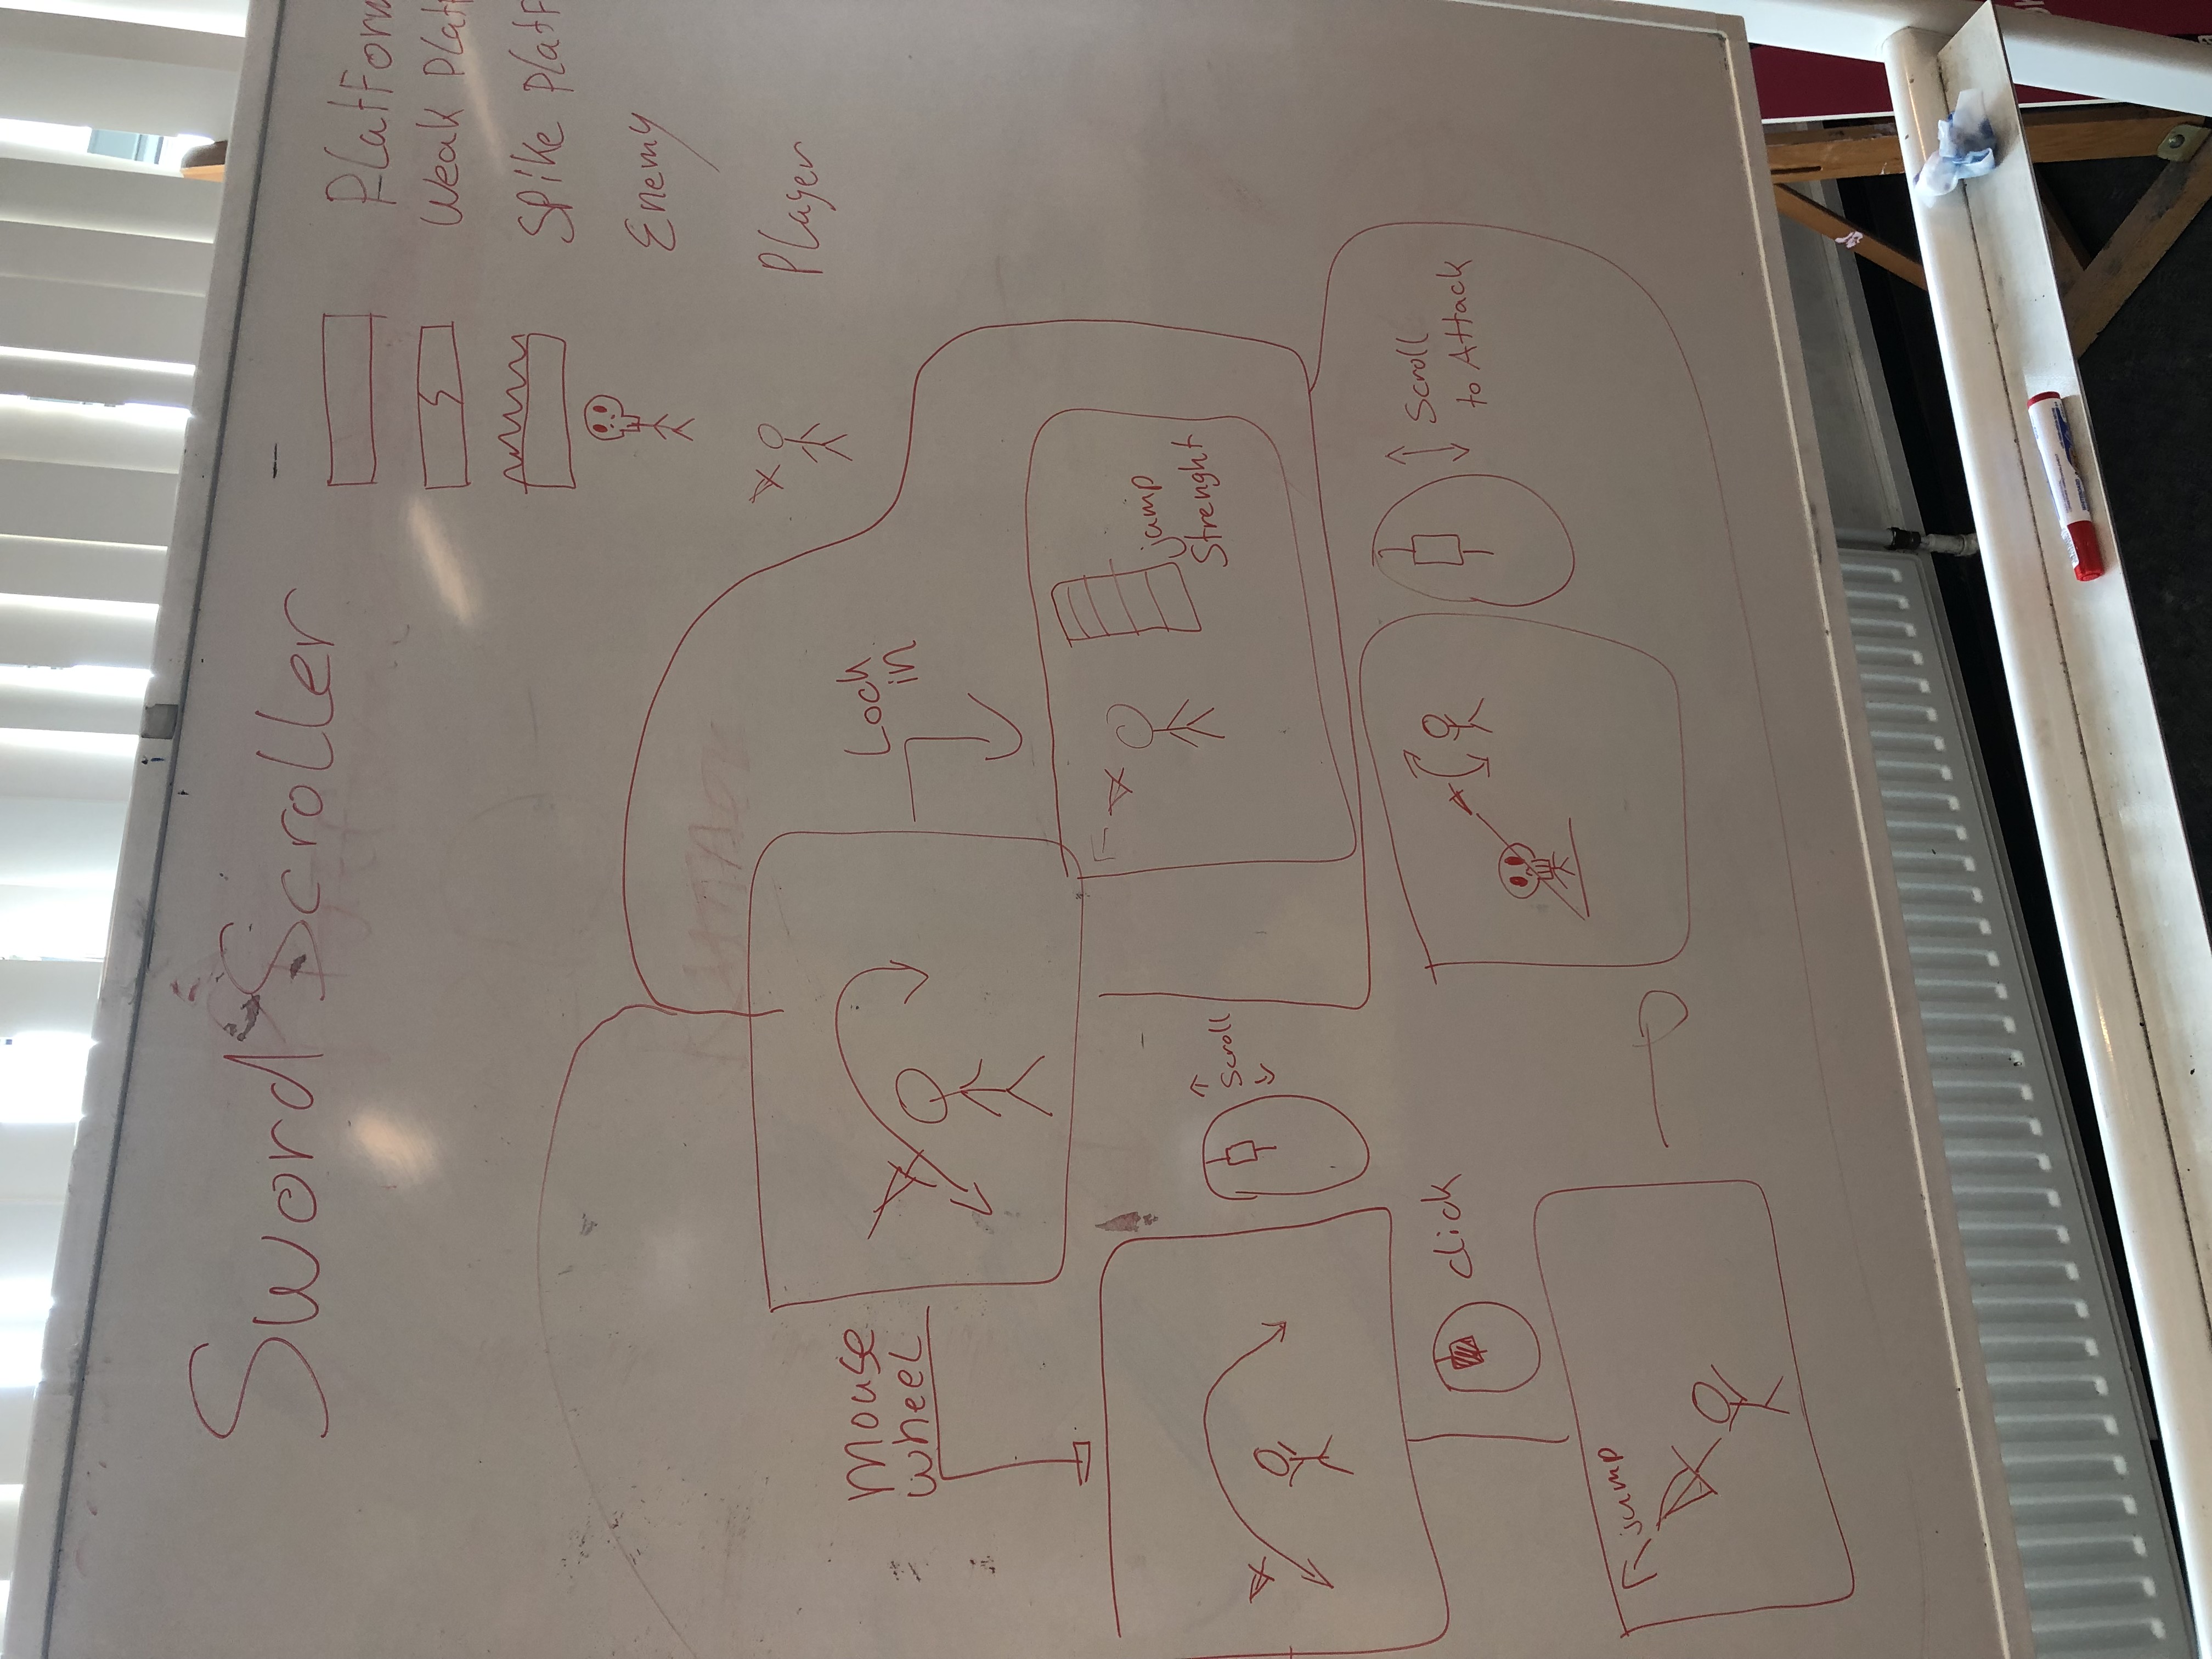 Sword Scroller
Platform
Weak Platf
Spike Platf
Enemy
Player
Mouse
wheel
Lock
in
jump
Strenght
↑
Scroll
↓
click
Scroll
to Attack
jump